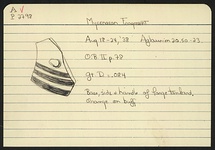 A.V
P 2798
Mycenaean Fragment
Aug 18-24, '38 Aghiasma 20.50-23
O.B. II p. 78
gr. D = .084
Base, side & handle of large tankard,
orange on buff